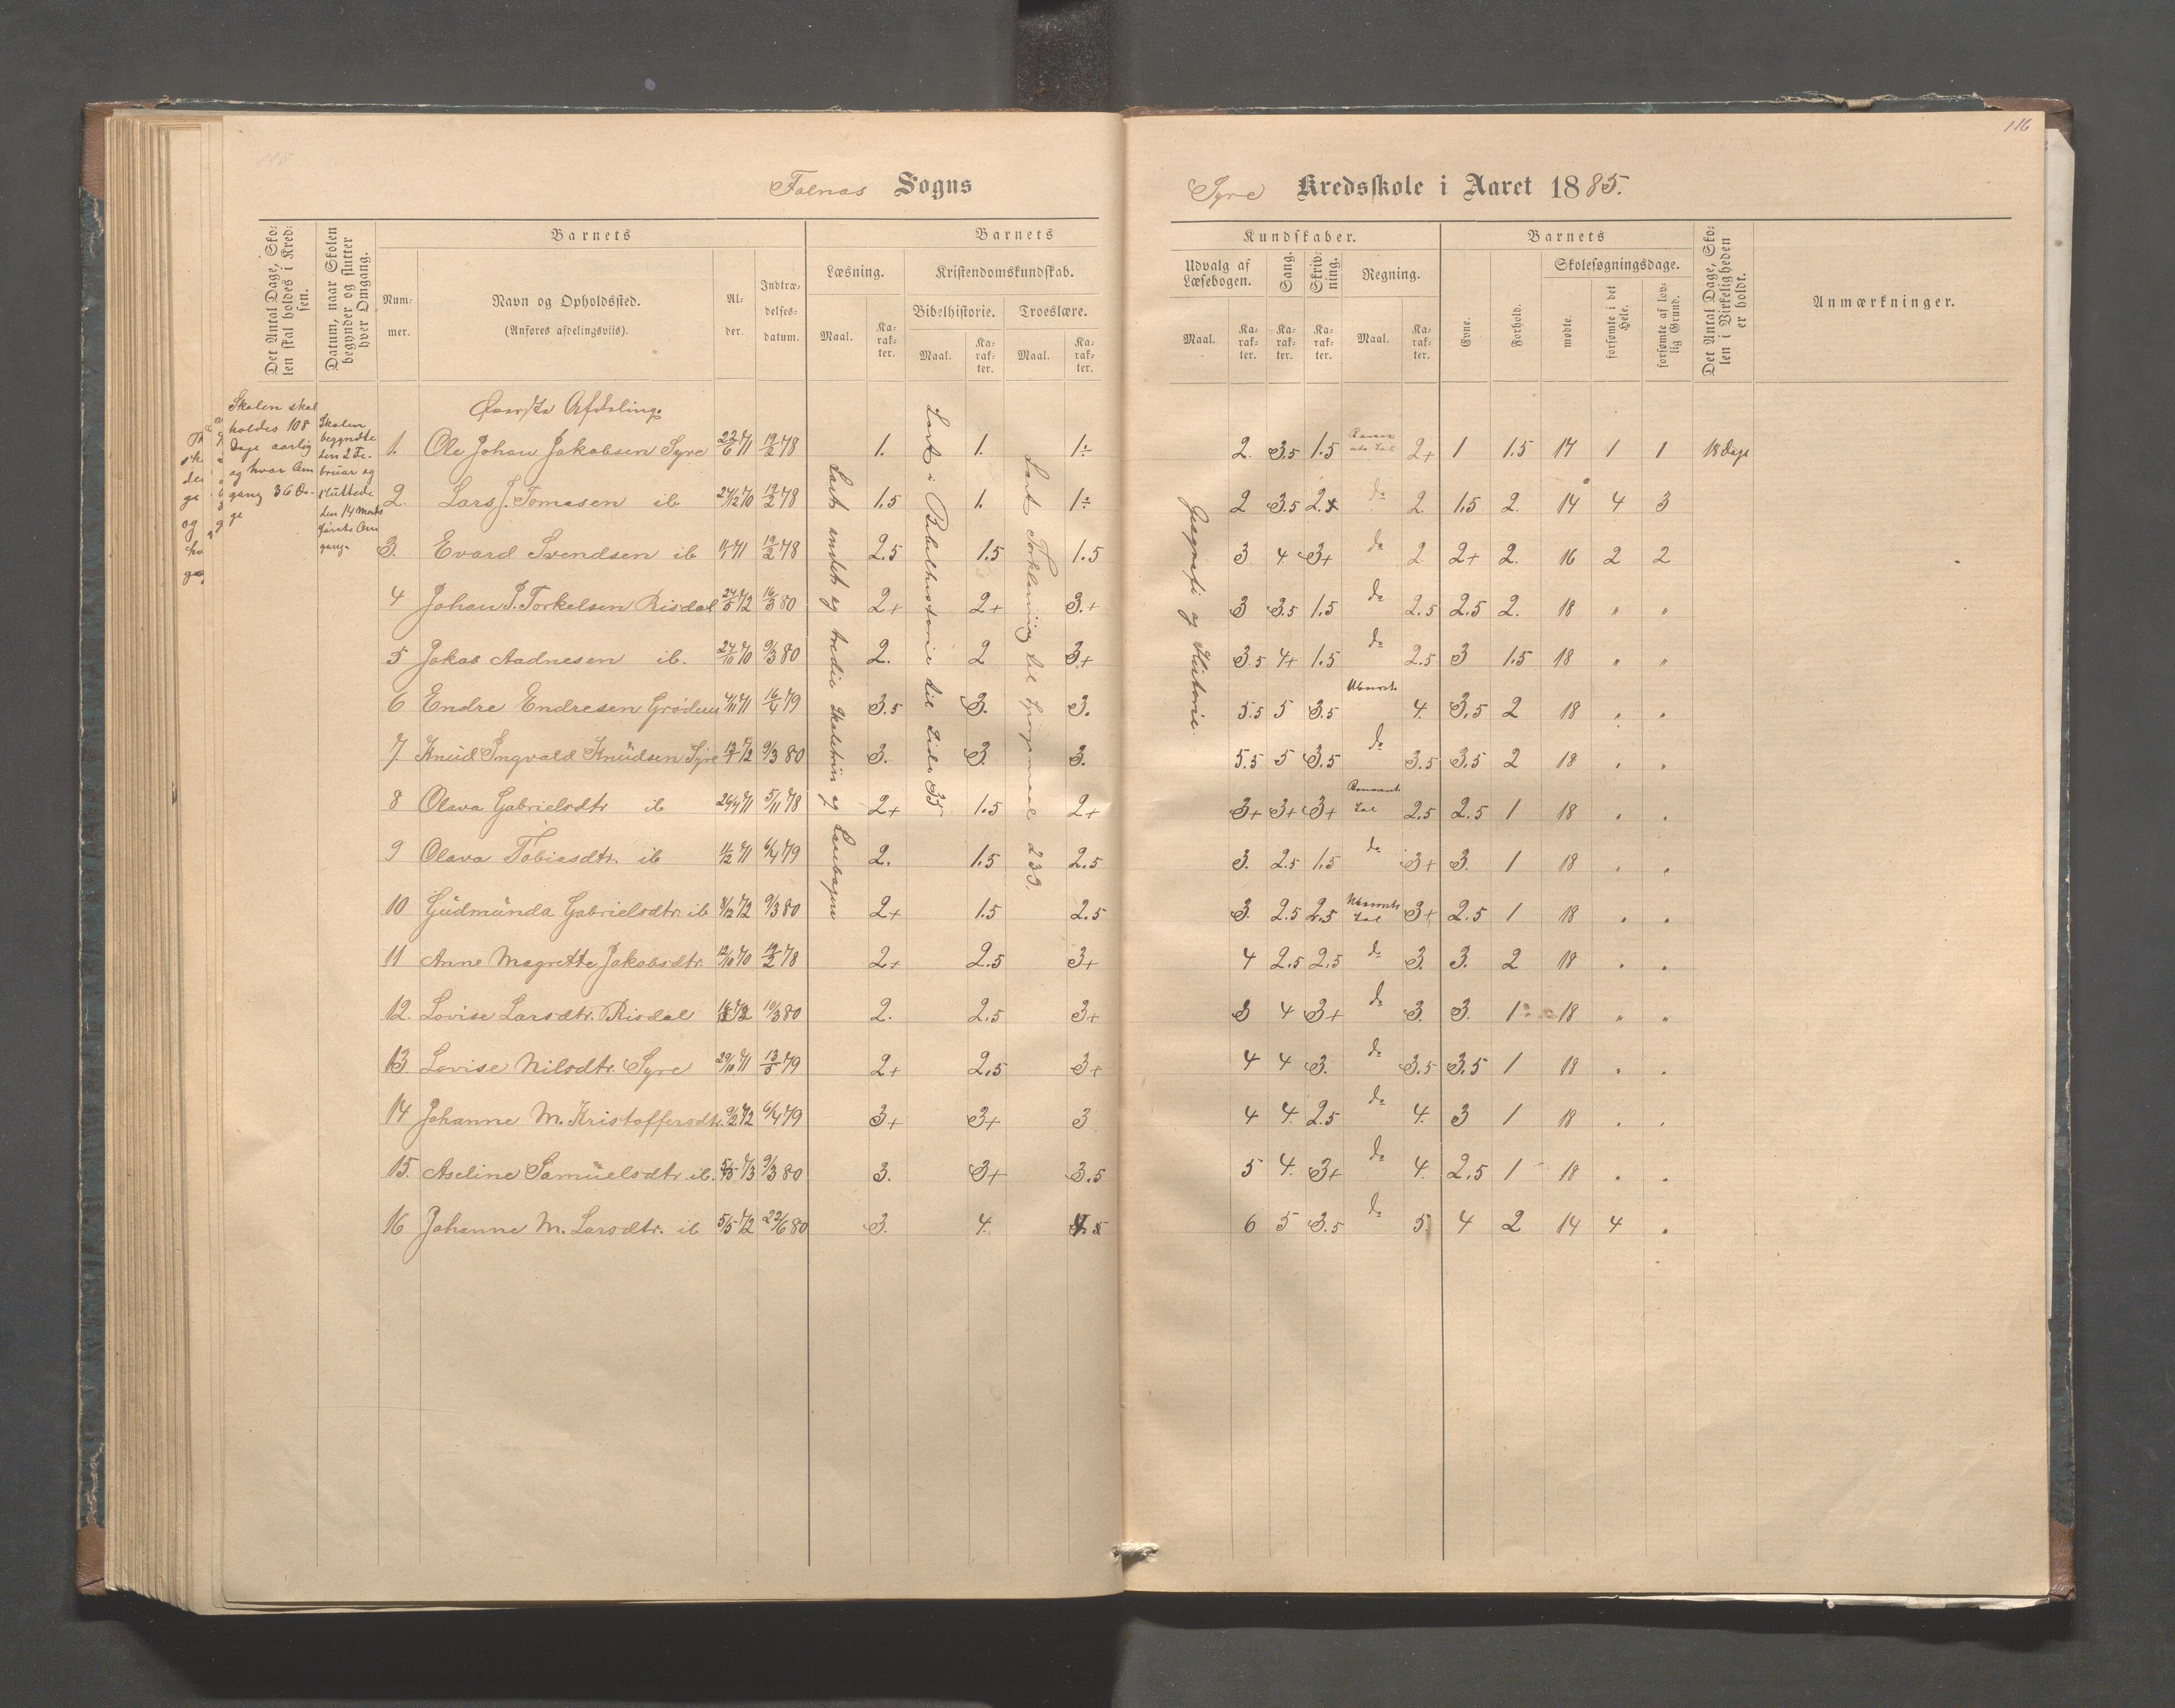 116
Falnes Sogns
Syre Kredsskole i Aaret 1885.
Det Antal Dage, Sko-
len skal holdes i Kred-
sen.
Datum, naar Skolen
begynder og slutter
hver Omgang.
Barnets
Num-
mer.
Navn og Opholdssted.
(Anføres afdelingsviis).
Al-
der.
Indtræ-
delses-
datum.
Barnets
Læsning.
Maal.
Ka-
rak-
ter.
Kristendomskundskab.
Bibelhistorie.
Troeslære.
Maal.
Ka-
rak-
ter.
Maal.
Ka-
rak-
ter.
Kundskaber.
Udvalg af
Læsebogen.
Maal.
Ka-
rak-
ter.
Sang.
Ka-
rak-
ter.
Skriv-
ning.
Ka-
rak-
ter.
Regning.
Maal.
Ka-
rak-
ter.
Barnets
Evne.
Forhold.
Skolesøgningsdage.
mødte.
forsømte i det
Hele.
forsømte af lov-
lig Grund.
Det Antal Dage, Sko-
len i Virkeligheden
er holdt.
Anmærkninger.
Skolen skal
holdes 108
Dage aarlig
og hver Om
gang 36 Da-
ge
Skolen
begyndte
den 2 Fe-
bruar og
sluttede
den 14 Marts
første Om
gang.
Læst andet og tredie Skoletrin og Læsebogen
Læst i Bibelhistorie til Side 35
Læst Forklaring til Spørgsmaal 239.
Geografi og Historie.
Afdeling.
1. Ole Johan Jakobsen Syre 22/6 71 19/2 78 1. 1. 1÷ 2. 3.5 1.5 2+ 1 1.5 17 1 1 18 Dage
2. Lars J. Tomasen ib 24/12 70 19/2 78 1.5 1. 1÷ 2 3.5 2 do 2. 1.5 2. 14 4 3
3. Evard Svendsen ib 71 19/2 78 2.5 1.5 1.5 3 4 3+ do 2 2+ 2. 16 2 2
4 Johan T. Torkelsen Risdal 24/5 72 16/3 80 2+ 2+ 3.+ 3 3.5 1.5 do 2.5 2.5 2. 18 " "
5 Jakob Aadnesen ib. 24/10 70 9/3 80 2. 2 3+ 3.5 4+ 1.5 do 2.5 3 1.5 18 " "
6 Endre Endresen 4/11 71 16/4 79 3.5 3. 3. 5.5 5 3.5 4. 3.5 2 18 " "
7 Knud Ingvald Knudsen Syre 72 9/3 80 3. 3. 3. 5.5 5 3.5 do 3.5 3.5 2 18 " "
8 Olava Gabrielsdtr ib 26/4 71 5/11 78 2+ 1.5 2+ 3+ 3+ 3+ 2.5 2.5 1 18 " "
9 Olava Tobiasdtr. ib 11/12 71 6/4 79 2. 1.5 2.5 3. 2.5 1.5 do 3+ 3. 1 18 " "
10 Gudmunda Gabrielsdtr. ib 8/12 72 9/3 80 2+ 1.5 2.5 3. 2.5 2.5 3+ 2.5 1 18 " "
11 Anne Magrette Jakobsdtr. 12/10 70 19/2 78 2+ 2.5 3+ 4 2.5 2.5 do 3. 3. 2 18 " "
12. Lovise Larsdtr. Risdal 10/3 80 2. 2.5 3+ 3 4 3+ do 3. 3. 1 18 " "
13. Lovise Nilsdtr. Syre 29/10 71 13/5 79 2+ 2.5 3+ 4 4 3. do 3.5 3.5 1 18 " "
14 Johanne M. Kristoffersdtr. 9/2 72 6/4 79 3+ 3+ 3 4 4. 2.5 do 4. 3 1 18 " "
15. Aseline Samuelsdtr. ib. 73 9/3 80 3. 3+ 3.5 5 4. 3+ do 4. 2.5 1 18 " "
16 Johanne M. Larsdtr. ib 5/5 72 22/6 80 3. 4. 6 5 3.5 do 5. 4 2 14 4 "